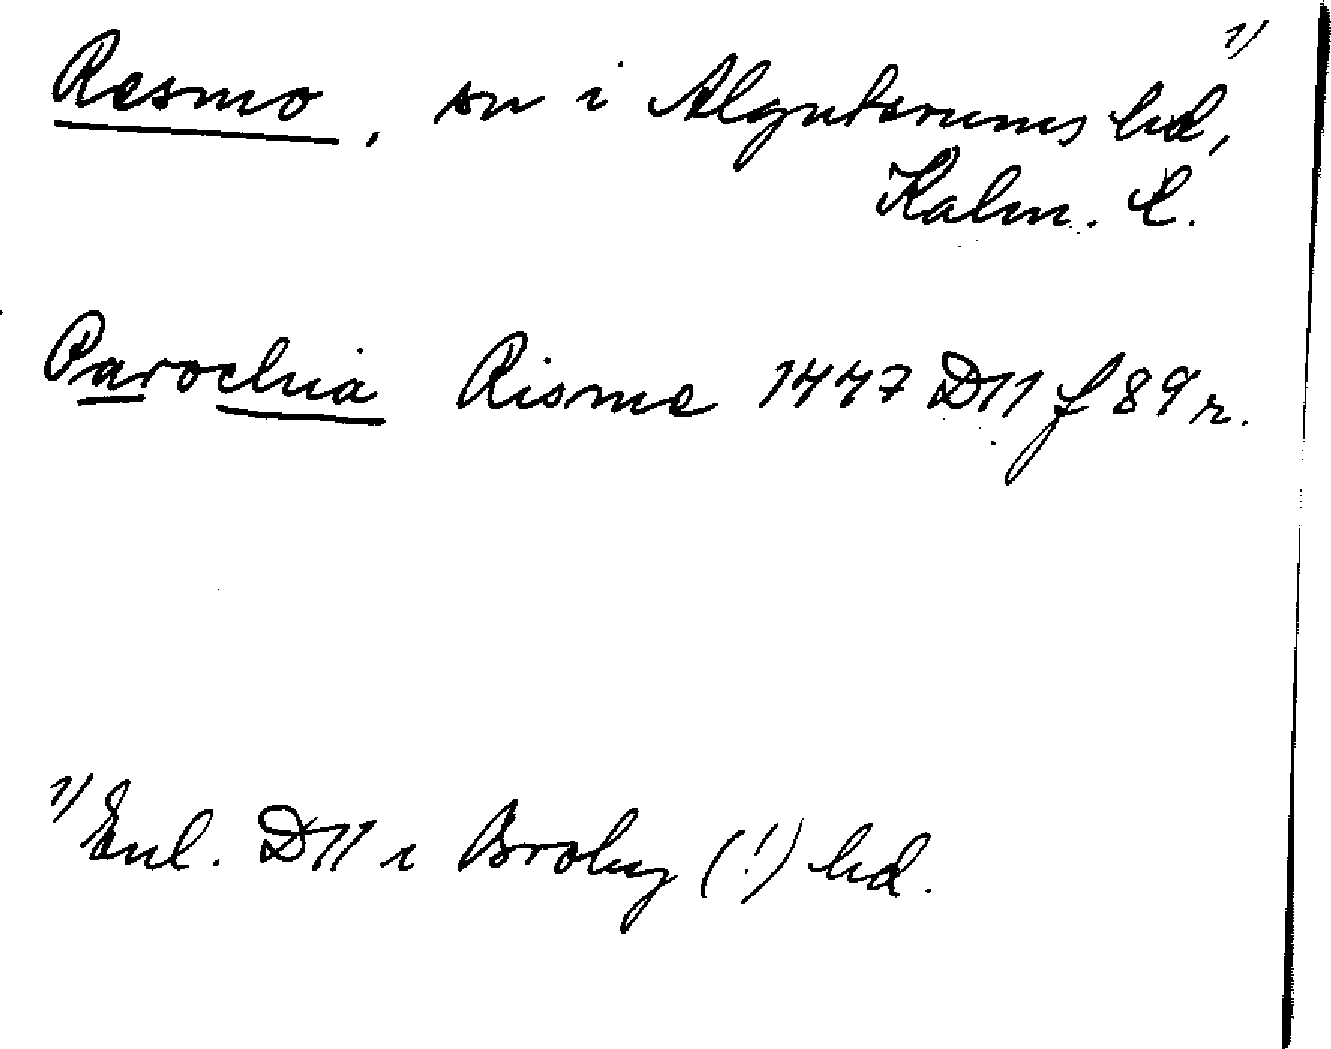 Resmo, sn i Algutsrums hd, 1)
Kalm. l.
Parochia Risme 1447 D11 f 89 r.
1) Enl. D11 i Broby (!) hd.